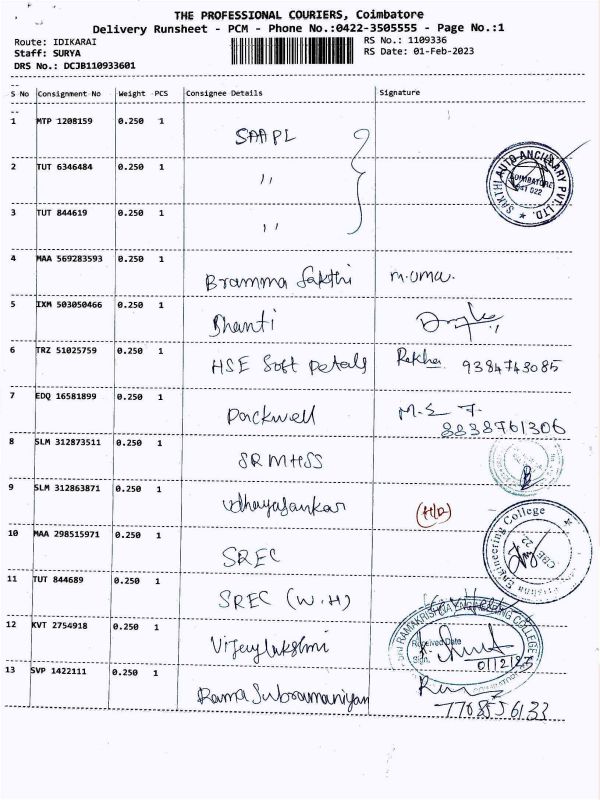 THE PROFESSIONAL COURIERS, Coimbatore
Delivery Runsheet - PCM - Phone No.:0422-3505555 - Page No.:1
Route: IDIKARAI RS No.: 1109336
Staff: SURYA RS Date: 01-Feb-2023
DRS No.: DCJB110933601
S No Consignment No Weight PCS Consignee Details Signature
1 MTP 1208159 0.250 1 SAAPL
2 TUT 6346484 0.250 1 ,,
SAKTHI AUTO ANCILLARY PVT. LTD. COIMBATORE 641 022
3 TUT 844619 0.250 1 ,,
4 MAA 569283593 0.250 1 Bramma Sakthi M.uma.
5 IXM 503050466 0.250 1 Bhanti
6 TRZ 51025759 0.250 1 HSE Soft Petals Rekha 9384743085
7 EDQ 16581899 0.250 1 Packwell M.S 8838761306
8 SLM 312873511 0.250 1 SRMHSS
9 SLM 312863871 0.250 1 Udhayasankar (H/D)
10 MAA 298515971 0.250 1 SREC
Engineering College CBE 22
11 TUT 844689 0.250 1 SREC (W.H)
12 KVT 2754918 0.250 1 Vijeylakshmi
SRI RAMAKRISHNA ENGINEERING COLLEGE
Received Date
Sign. 01/2/23
13 SVP 1422111 0.250 1 Rama Subramaniyan
7708556133